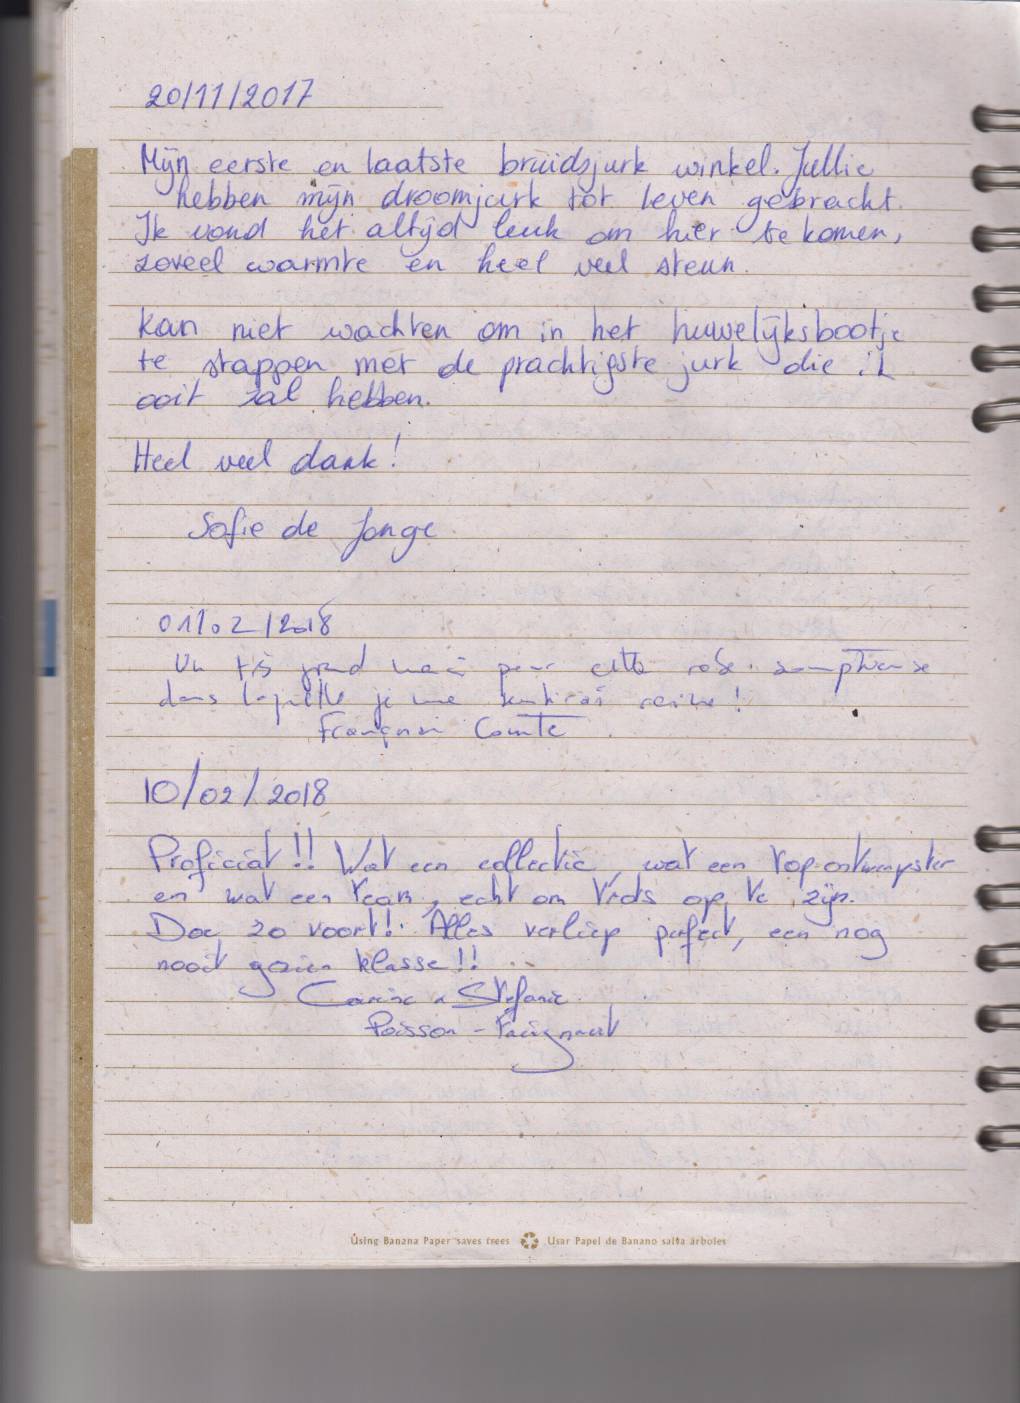 20/11/2017
Mijn eerste en laatste bruidsjurk winkel. Jullie
hebben mijn droomjurk tot leven gebracht.
Ik vond het altijd leuk om hier te komen,
zoveel warmte en heel veel steun.
Kan niet wachten om in het huwelijksbootje
te stappen met de prachtigste jurk die ik
ooit zal hebben.
Heel veel dank!
Sofie de Jonge
01/02/2018
Un très grand merci pour cette robe somptueuse
dans laquelle je me sentirai reine!
Comte
10/02/2018
Proficiat!! Wat een collectie, wat een topontwerpster
en wat een team, echt om trots op te zijn.
Doe zo voort! Alles verliep perfect, een nog
nooit gezien klasse!!
Carine & Stefanie
Poisson -
Using Banana Paper saves trees Usar Papel de Banano salva árboles